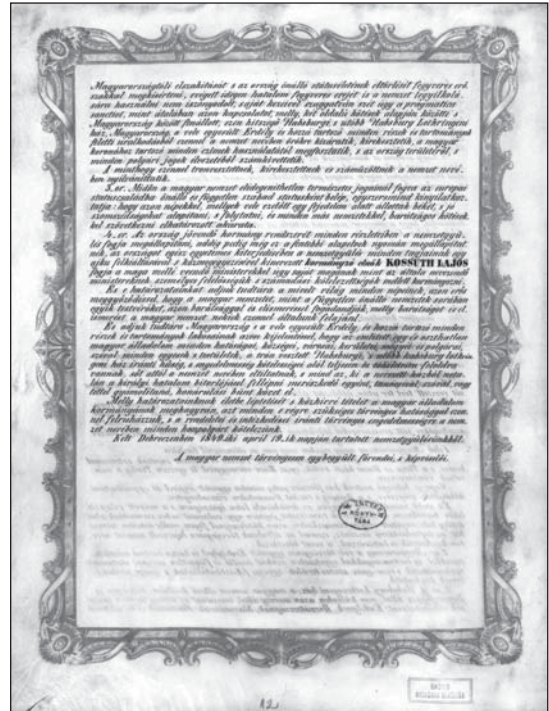 Magyarországtóli elszakítását s az ország önálló státuséletének eltörlését fegyveres erő-
szakkal megkísérteni, s végett idegen hatalom fegyveres erejét is a nemzet legyilkolá-
sára használni nem iszonyodott, saját kezeivel szaggatván szét úgy a pragmatica
sanctiót, mint általában azon kapcsolatot, melly, két oldalú kötések alapján közötte s
Magyarország között fennállott, ezen hitszegő Habsburgi, s utóbb Habsburg Lothringeni
ház, Magyarország, a vele egyesült Erdély és hozzá tartozó minden részek és tartományok
feletti uralkodásból ezennel a nemzet nevében örökre kizáratik, kirekesztetik, a magyar
koronához tartozó minden czímek használatától megfosztatik, s az ország területéről, s
minden polgári jogok élvezetéből számkivettetik.
A minthogy ezennel trónvesztettnek, kirekesztettnek és száműzöttnek a nemzet nevé-
ben nyilváníttatik.
3. or. Midőn a magyar nemzet elidegeníthetlen természetes jogainál fogva az európai
statuscsaládba önálló és független szabad statusként belép, egyszersmind kinyilatkoz-
tatja: hogy azon népekkel, mellyek vele ezelőtt egy fejedelem alatt állottak békét, s jó
szomszédságokat alapítani, s folytatni, és minden más nemzetekkel, barátságos kötések-
kel szövetkezni elhatározott akarata.
4. or. Az ország jövendő kormány rendszerét minden részleteiben a nemzetgyű-
lés fogja megállapítani, addig pedig még ez a fentebbi alapelvek nyomán megállapítat-
nék, az országot egész egyetemes kiterjedésében a nemzetgyűlés minden tagjainak egy
ajku felkiáltásával s közmegegyezésével kinevezett kormányzó elnök KOSSUTH LAJOS
fogja a maga mellé veendő ministerekkel úgy saját magának mint az általa nevezendő
ministereknek személyes felelősségük s számadási kötelezettségük mellett kormányozni.
És e határozatainkat adjuk tudtára a mívelt világ minden népeinek, azon erős
meggyőződéssel, hogy a magyar nemzetet, mint a független önálló nemzetek sorában
egyik testvéröket, azon barátsággal és elismeréssel fogadandják, melly barátságot és el-
ismerést a magyar nemzet nekiek ezennel általunk felajánl.
És adjuk tudtára Magyarország s a vele egyesült Erdély, és hozzá tartozó minden
részek és tartományok lakosainak azon kijelentéssel, hogy az említett egy és oszthatlan
magyar álladalom minden hatóságai, községei, városai, kerületei, megyéi és polgárai,
szóval minden egyesek s testületek, a trón vesztett Habsburgi, s utóbb habsburg lothrin-
geni ház iránti hűség, s engedelmesség kötelességei alól teljesen és tökéletesen föloldoz-
vannak, sőt attól a nemzet nevében eltiltatnak, s mind az, ki a nevezett házból neta-
lán a királyi hatalom bitorlójával fellépni merészkedő egyént, tanácscsal, szóval, vagy
tettel gyámolítand, honárulási bűnt követ el.
Melly határozatunknak életbe léptetését s közhírré tételét a magyar álladalom
kormányzójának meghagyván, azt minden e végre szükséges törvényes hatósággal ezen-
nel felruházzuk, s a rendeletei és intézkedései iránti törvényes engedelmességre a nem-
zet nevében minden honpolgárt kötelezünk.
Kelt Debreczenben 1849.iki april 19.ik napján tartatott nemzetgyűlésünkből.
A magyar nemzet törvényesen egybegyűlt főrendei, s képviselői.
KÖNYV-
TÁRA